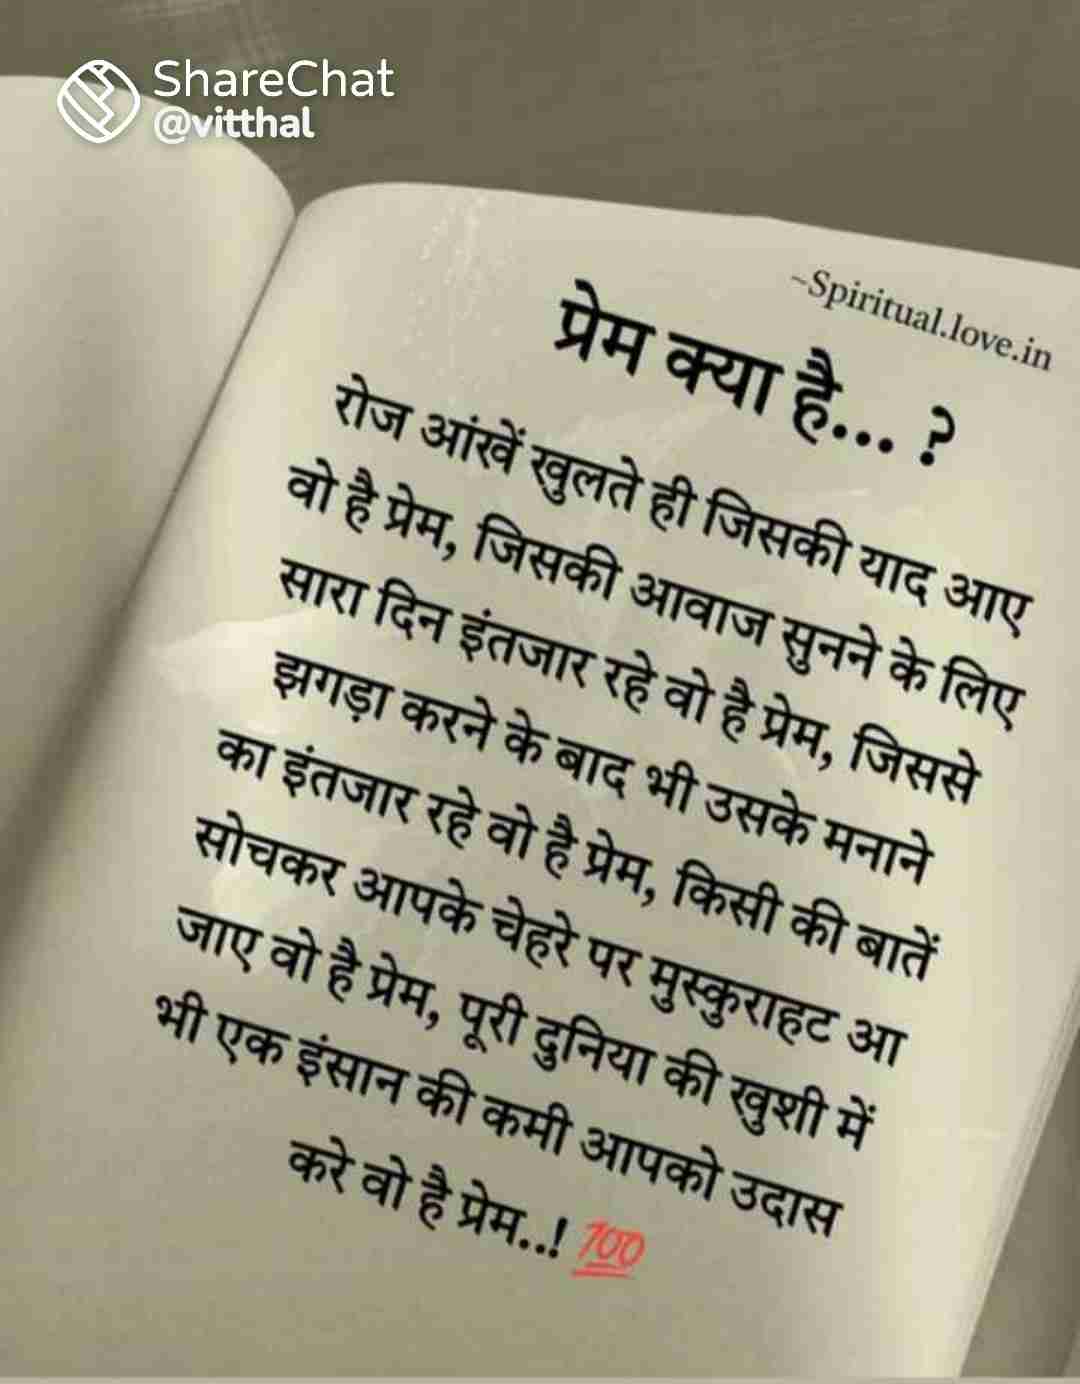 ShareChat
@vitthal
~Spiritual.love.in
प्रेम क्या है... ?
रोज आंखें खुलते ही जिसकी याद आए
वो है प्रेम, जिसकी आवाज सुनने के लिए
सारा दिन इंतजार रहे वो है प्रेम, जिससे
झगड़ा करने के बाद भी उसके मनाने
का इंतजार रहे वो है प्रेम, किसी की बातें
सोचकर आपके चेहरे पर मुस्कुराहट आ
जाए वो है प्रेम, पूरी दुनिया की खुशी में
भी एक इंसान की कमी आपको उदास
करे वो है प्रेम..! 💯